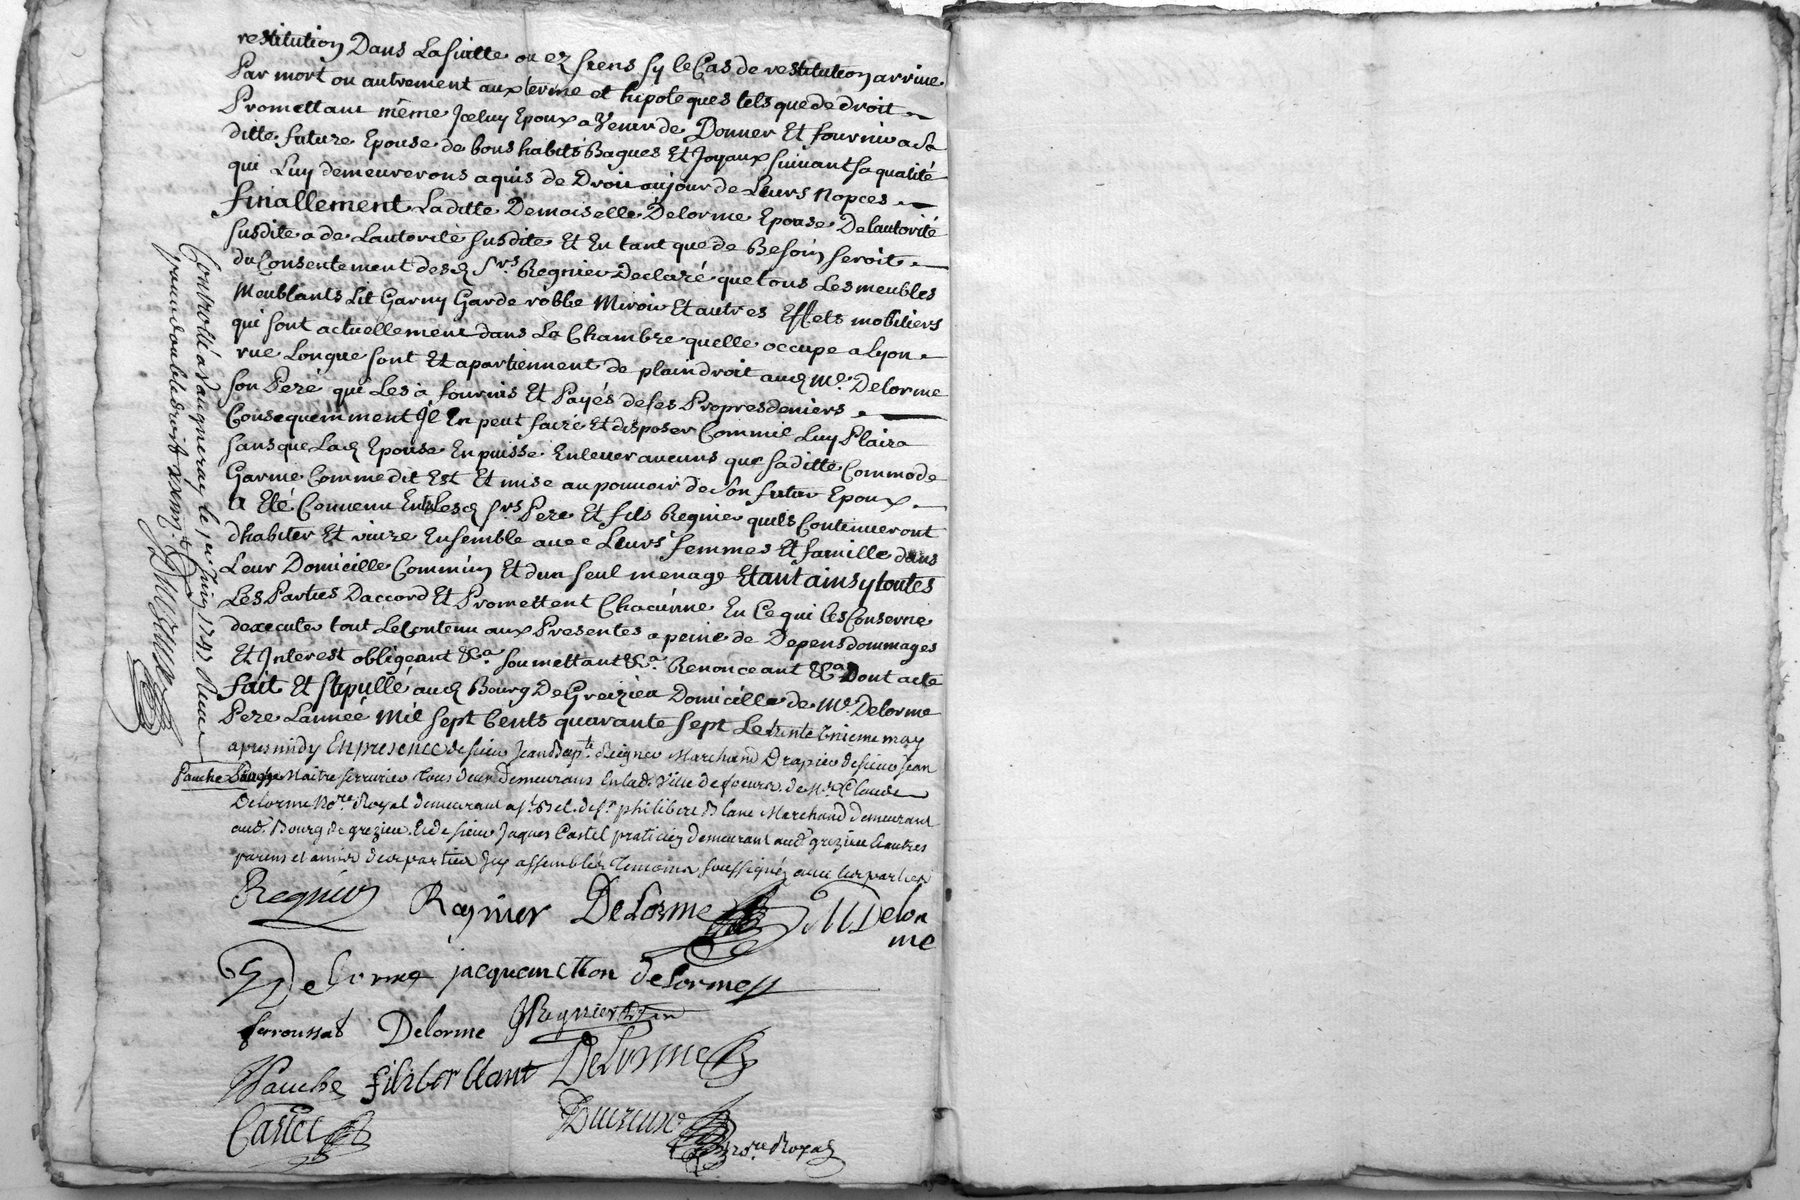 restitution Dans La suitte ou ez siens sy le Cas de restitution arrive
Par mort ou autrement aux terme et hipoteques tels que de droit
Promettant même Jceluy Epoux a Venir de Donner Et fournir a Sa
ditte future Epouse de bons habits Bagues Et Joyaux suivant sa qualité
qui Luy demeurerons aquis de Droit au jour de Leurs Nopces
finallement Laditte Demoiselle Delorme Epouse De lautorité
susdite a de Lautorité susdite Et En tant que de Besoin seroit
du Consentement desd Srs. Regnier Declaré que tous Les meubles
Meublants Lit Garny Garde robbe Miroir Et autres Effets mobiliers
qui sont actuellement dans La Chambre quelle occupe a Lyon
rue Longue sont Et apartiennent de plain droit aud Me. Delorme
son Peré qui Les à fournis Et Payés de ses Propres deniers
Consequemment Jl En peut fairé Et disposer Comme Luy Plaira
sans que Lad Epouse En puisse Enlever aucuns que saditte Commode
Garnie Comme dit Est Et mise au pouvoir de Son futur Epoux
A Eté Convenu Entre Lesd Srs Pere Et fils Regnier quils Continueront
dhabiter Et vivre Ensemble avec Leurs femmes Et famille dans
Leur Domicille Commun Et dun seul menage Etant ainsy toutes
Les Parties Daccord Et Promettent Chacunne En Ce qui les Conserne
dexecuter tout Le Contenu aux Presentes a peine de Depens dommages
Et Jnterest obligeant &Ca. soumettant &Ca. Renonceant &Ca Dont acte
fait Et stipullé aud Bourg De Greizieu Domicille de Me. Delorme
Pere Lannéé Mil sept Cents quarante sept Le trente Unieme may
apres midy En presence de sieur Jean Bapte. Reignier Marchand Drapier de sieur Jean
Pauche Maitre serrurier tous deux Demeurans En lad. Ville de de Me. Claude
Delorme Nore. Royal demeurant a St. Bel. de Sr. philibert Blanc Marchand demeurant
aud. Bourg de grezieu. Et de sieur Jaques Castel praticien demeurant aud. grezieu & autres
parens et amis desd parties Jcy assemblés temoins soussignéz avec les parties
Regnier Regnier DeLorme M Delor
me
Delorme jacquemetton delorme
ferroussat Delorme JRegnier
Pauche filiber blant DeLorme
Castel Nore Royal
Controllé a Vaugneray le juin 1747 Reçu